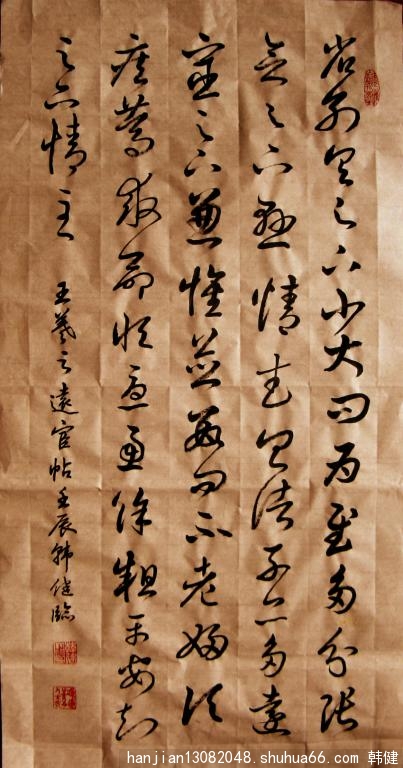 省別具足下小大問為慰多分張
念足下懸情武昌諸子亦多遠
宦足下兼懷並數問不老婦頃
疾篤救命恒憂慮餘粗平安知
足下情至
王羲之遠宦帖壬辰韩健臨
hanjian13082048.shuhua66.com 韩健